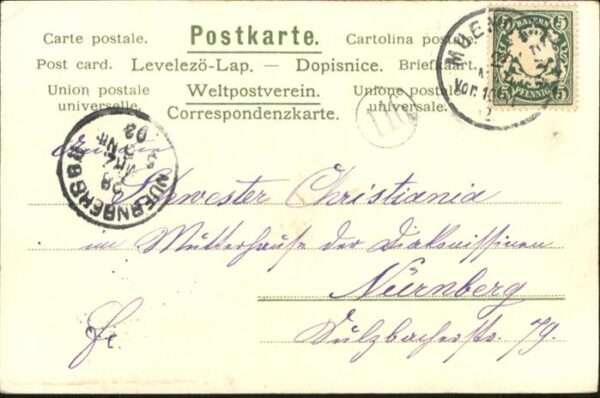 Carte postale. Postkarte. Cartolina postale.
Post card. Levelezö-Lap. — Dopisnice. Briefkaart.
Union postale universelle. Weltpostverein. Unione postale universale.
Correspondenzkarte.
BAYERN
5 5
PFENNIG
5 5
110
NUERNBERG
Schwester Christiania
im Mutterhause der Diakonissinnen
Nürnberg
Sulzbacherstr. 79.
Fr.